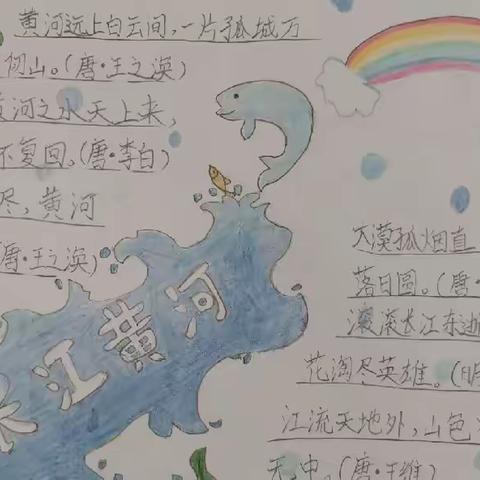 黄河远上白云间，一片孤城万
仞山。(唐·王之涣)
黄河之水天上来，
不复回。(唐·李白)
尽，黄河
唐·王之涣)
长江黄河
大漠孤烟直
落日圆。(唐·
滚滚长江东逝
花淘尽英雄。(明
江流天地外，山色
无中。(唐·王维)